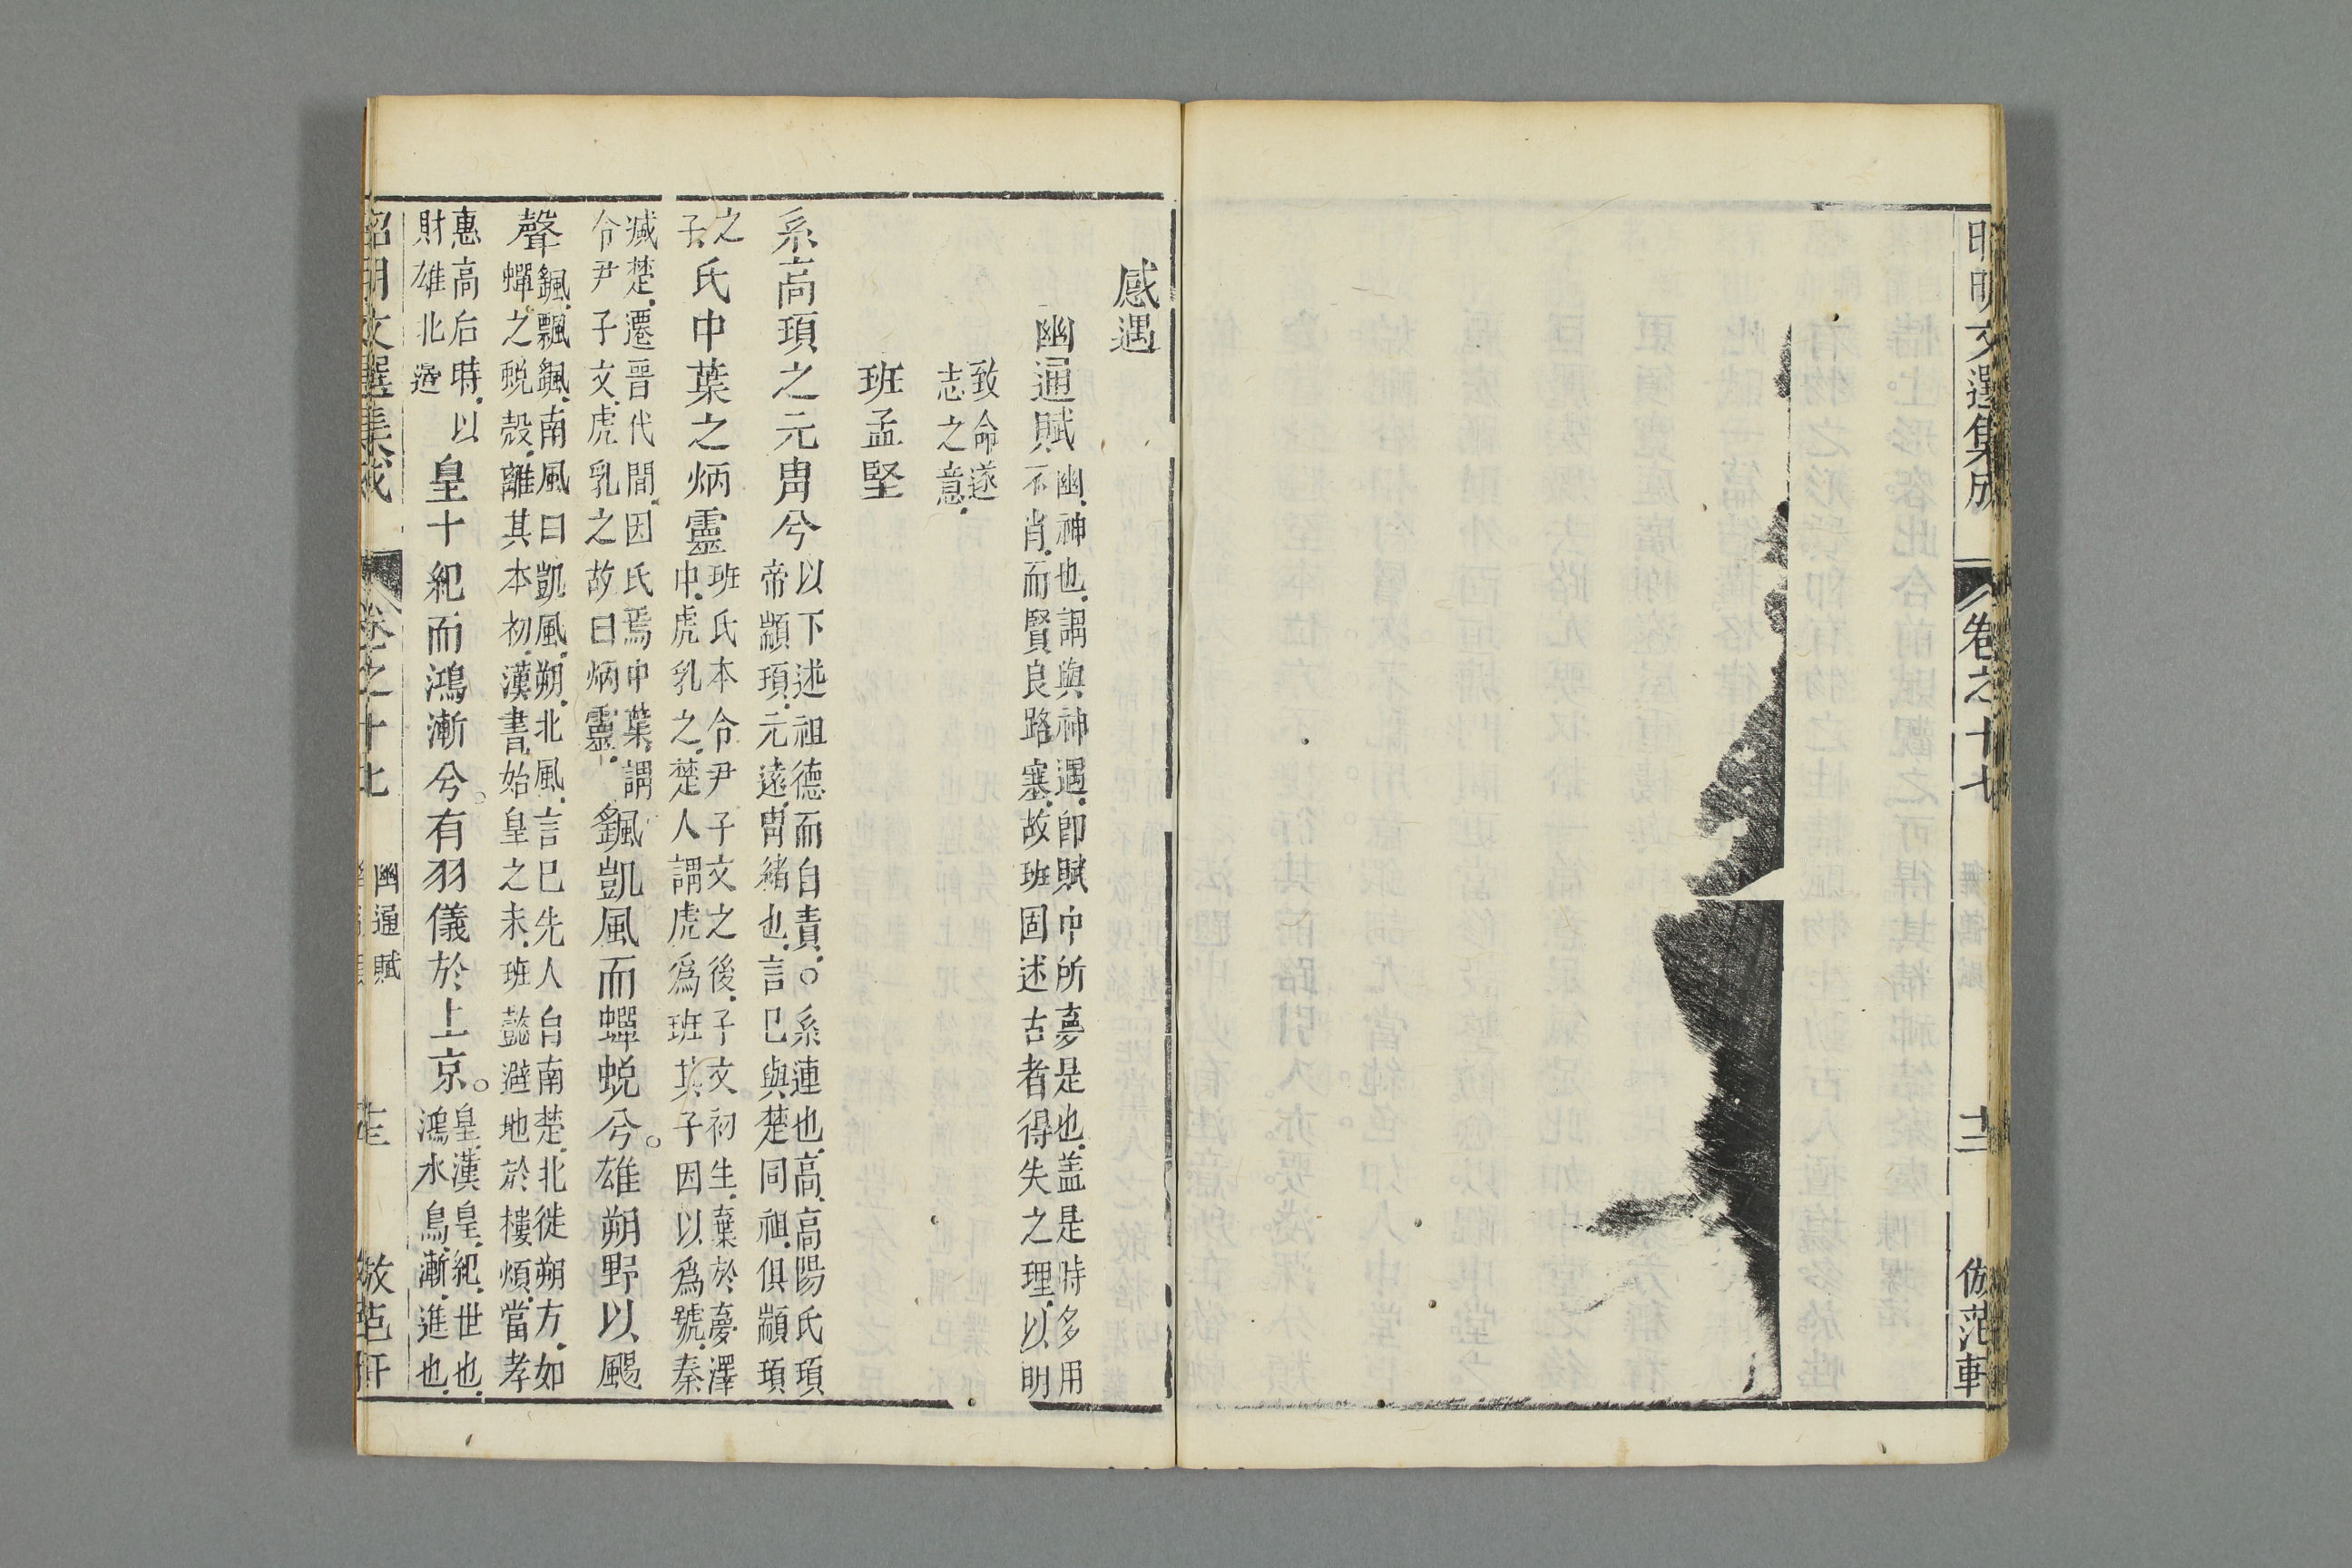 昭明文選集成 卷之十七 舞鶴賦 十二 倣范軒
感遇
幽通賦 幽神也謂與神遇卽賦中所夢是也盖是時多用
不肖而賢良路塞故班固述古者得失之理以明
致命遂
志之意
班孟堅
系高頊之元冑兮 以下述祖德而自責○系連也高高陽氏頊
帝顓頊元遠冑緒也言巳與楚同祖俱顓頊
之
子 氏中葉之炳靈 班氏本令尹子文之後子文初生棄於夢澤
中虎乳之楚人謂虎爲班其子因以爲號秦
滅楚遷晉代間因氏焉中葉謂
令尹子文虎乳之故曰炳靈 飖凱風而蟬蛻兮雄朔野以颺
聲 飖飄飖南風曰凱風朔北風言巳先人自南楚北徙朔方如
蟬之蛻殻離其本初漢書始皇之末班懿避地於樓煩當孝
惠高后時以
財雄北邊 皇十紀而鴻漸兮有羽儀於上京 皇漢皇紀世也
鴻水鳥漸進也
昭明文選集成 卷之十七 幽通賦